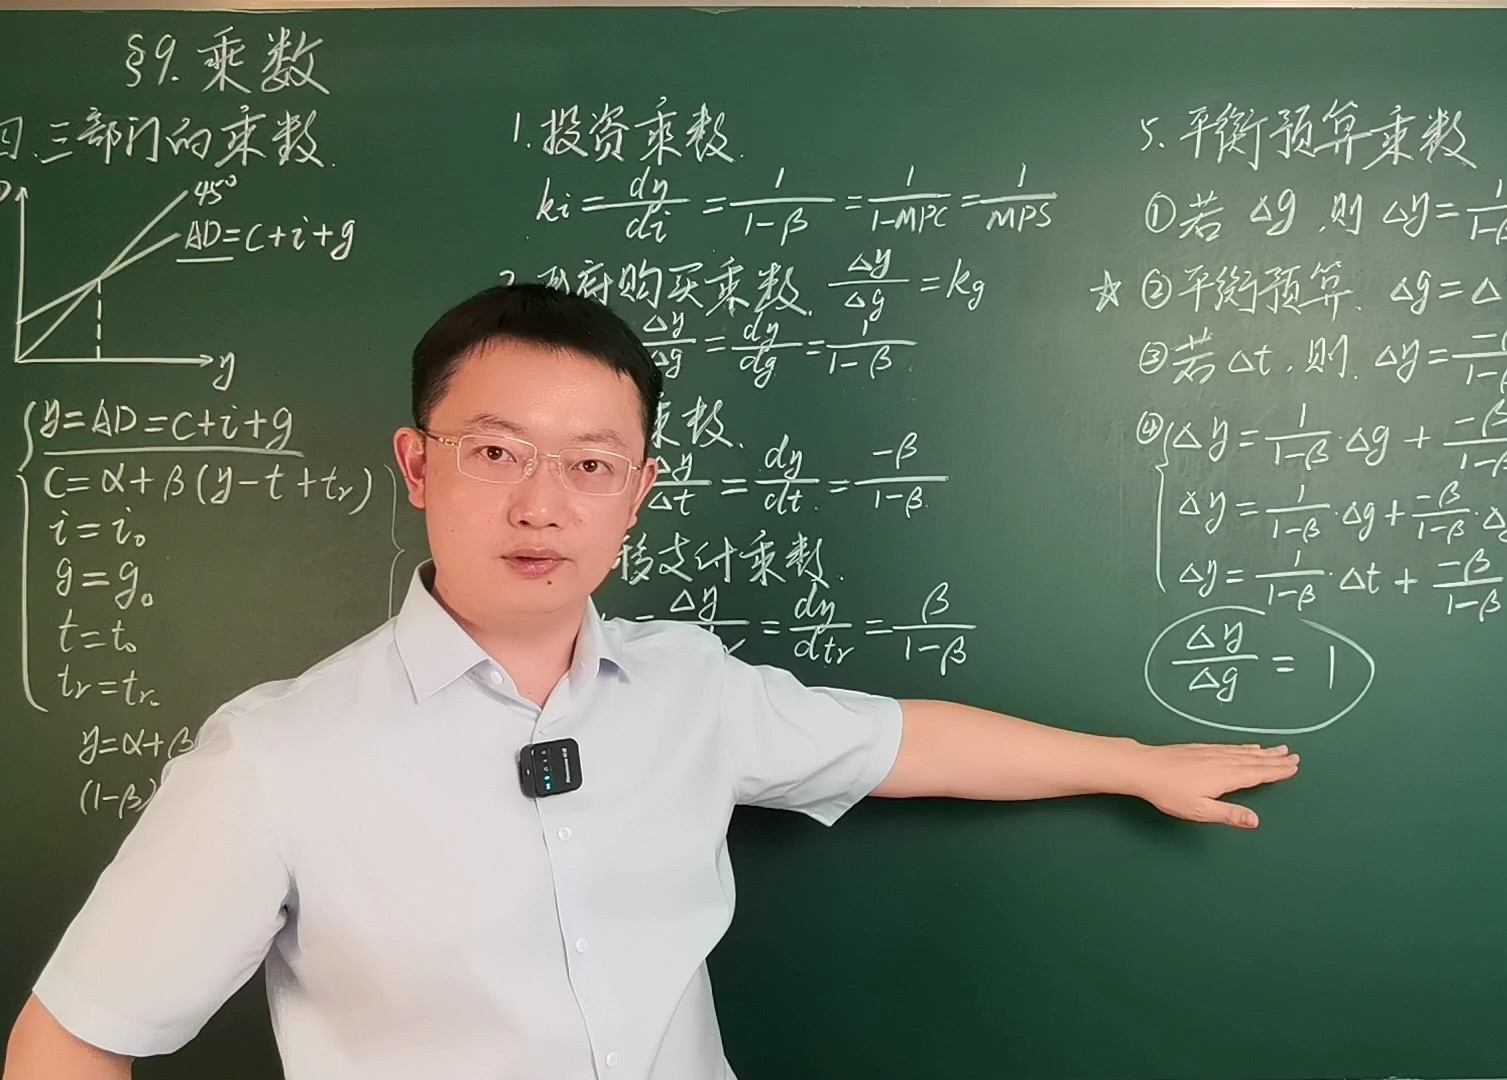 §9. 乘数
三部门的乘数.
45°
AD=c+i+g
y
y=AD=c+i+g
c=α+β(y-t+tr)
i=i₀
g=g₀
t=t₀
tr=tr₀
y=α+β
(1-β)
1.投资乘数.
ki=dy/di=1/(1-β)=1/(1-MPC)=1/MPS
2.政府购买乘数. Δy/Δg=kg
Δy/Δg=dy/dg=1/(1-β)
乘数.
Δy/Δt=dy/dt=-β/(1-β)
移支付乘数.
=Δy/=dy/dtr=β/(1-β)
5.平衡预算乘数
①若 Δg,则 Δy=1/(1-β
☆②平衡预算. Δg=Δ
③若Δt.则.Δy=-β/(1-β
④Δy=1/(1-β)·Δg+-β/(1-β
Δy=1/(1-β)·Δg+-β/(1-β)·Δg
Δy=1/(1-β)·Δt+-β/(1-β
Δy/Δg=1